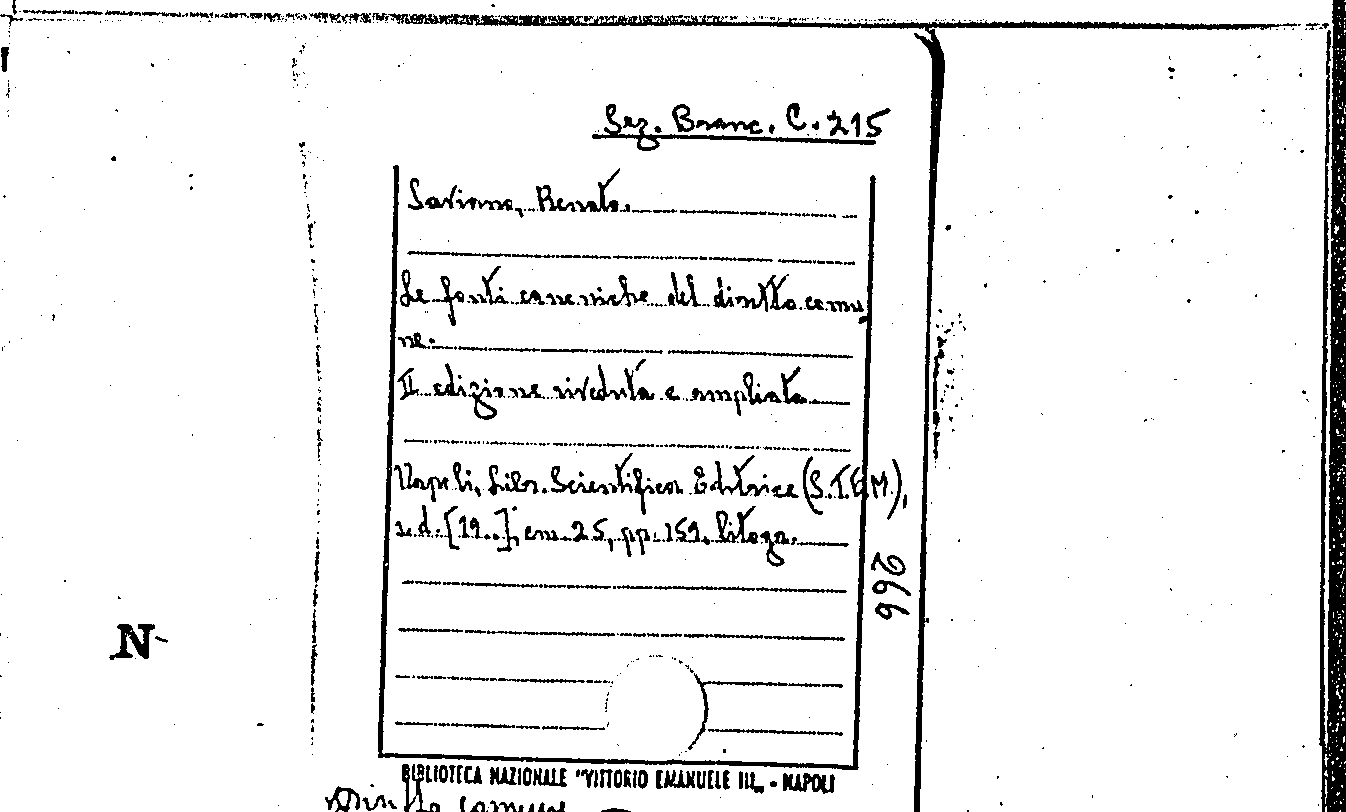 Sez. Branc. C. 215
Saviano, Renato.
Le fonti canoniche del diritto comu
ne.
II edizione riveduta e ampliata
Napoli, Libr. Scientifica Editrice (S.T.E.M.),
s. d. [19..], cm. 25, pp. 159, litogr.
266
N
BIBLIOTECA NAZIONALE "VITTORIO EMANUELE III„ - NAPOLI
Diritto